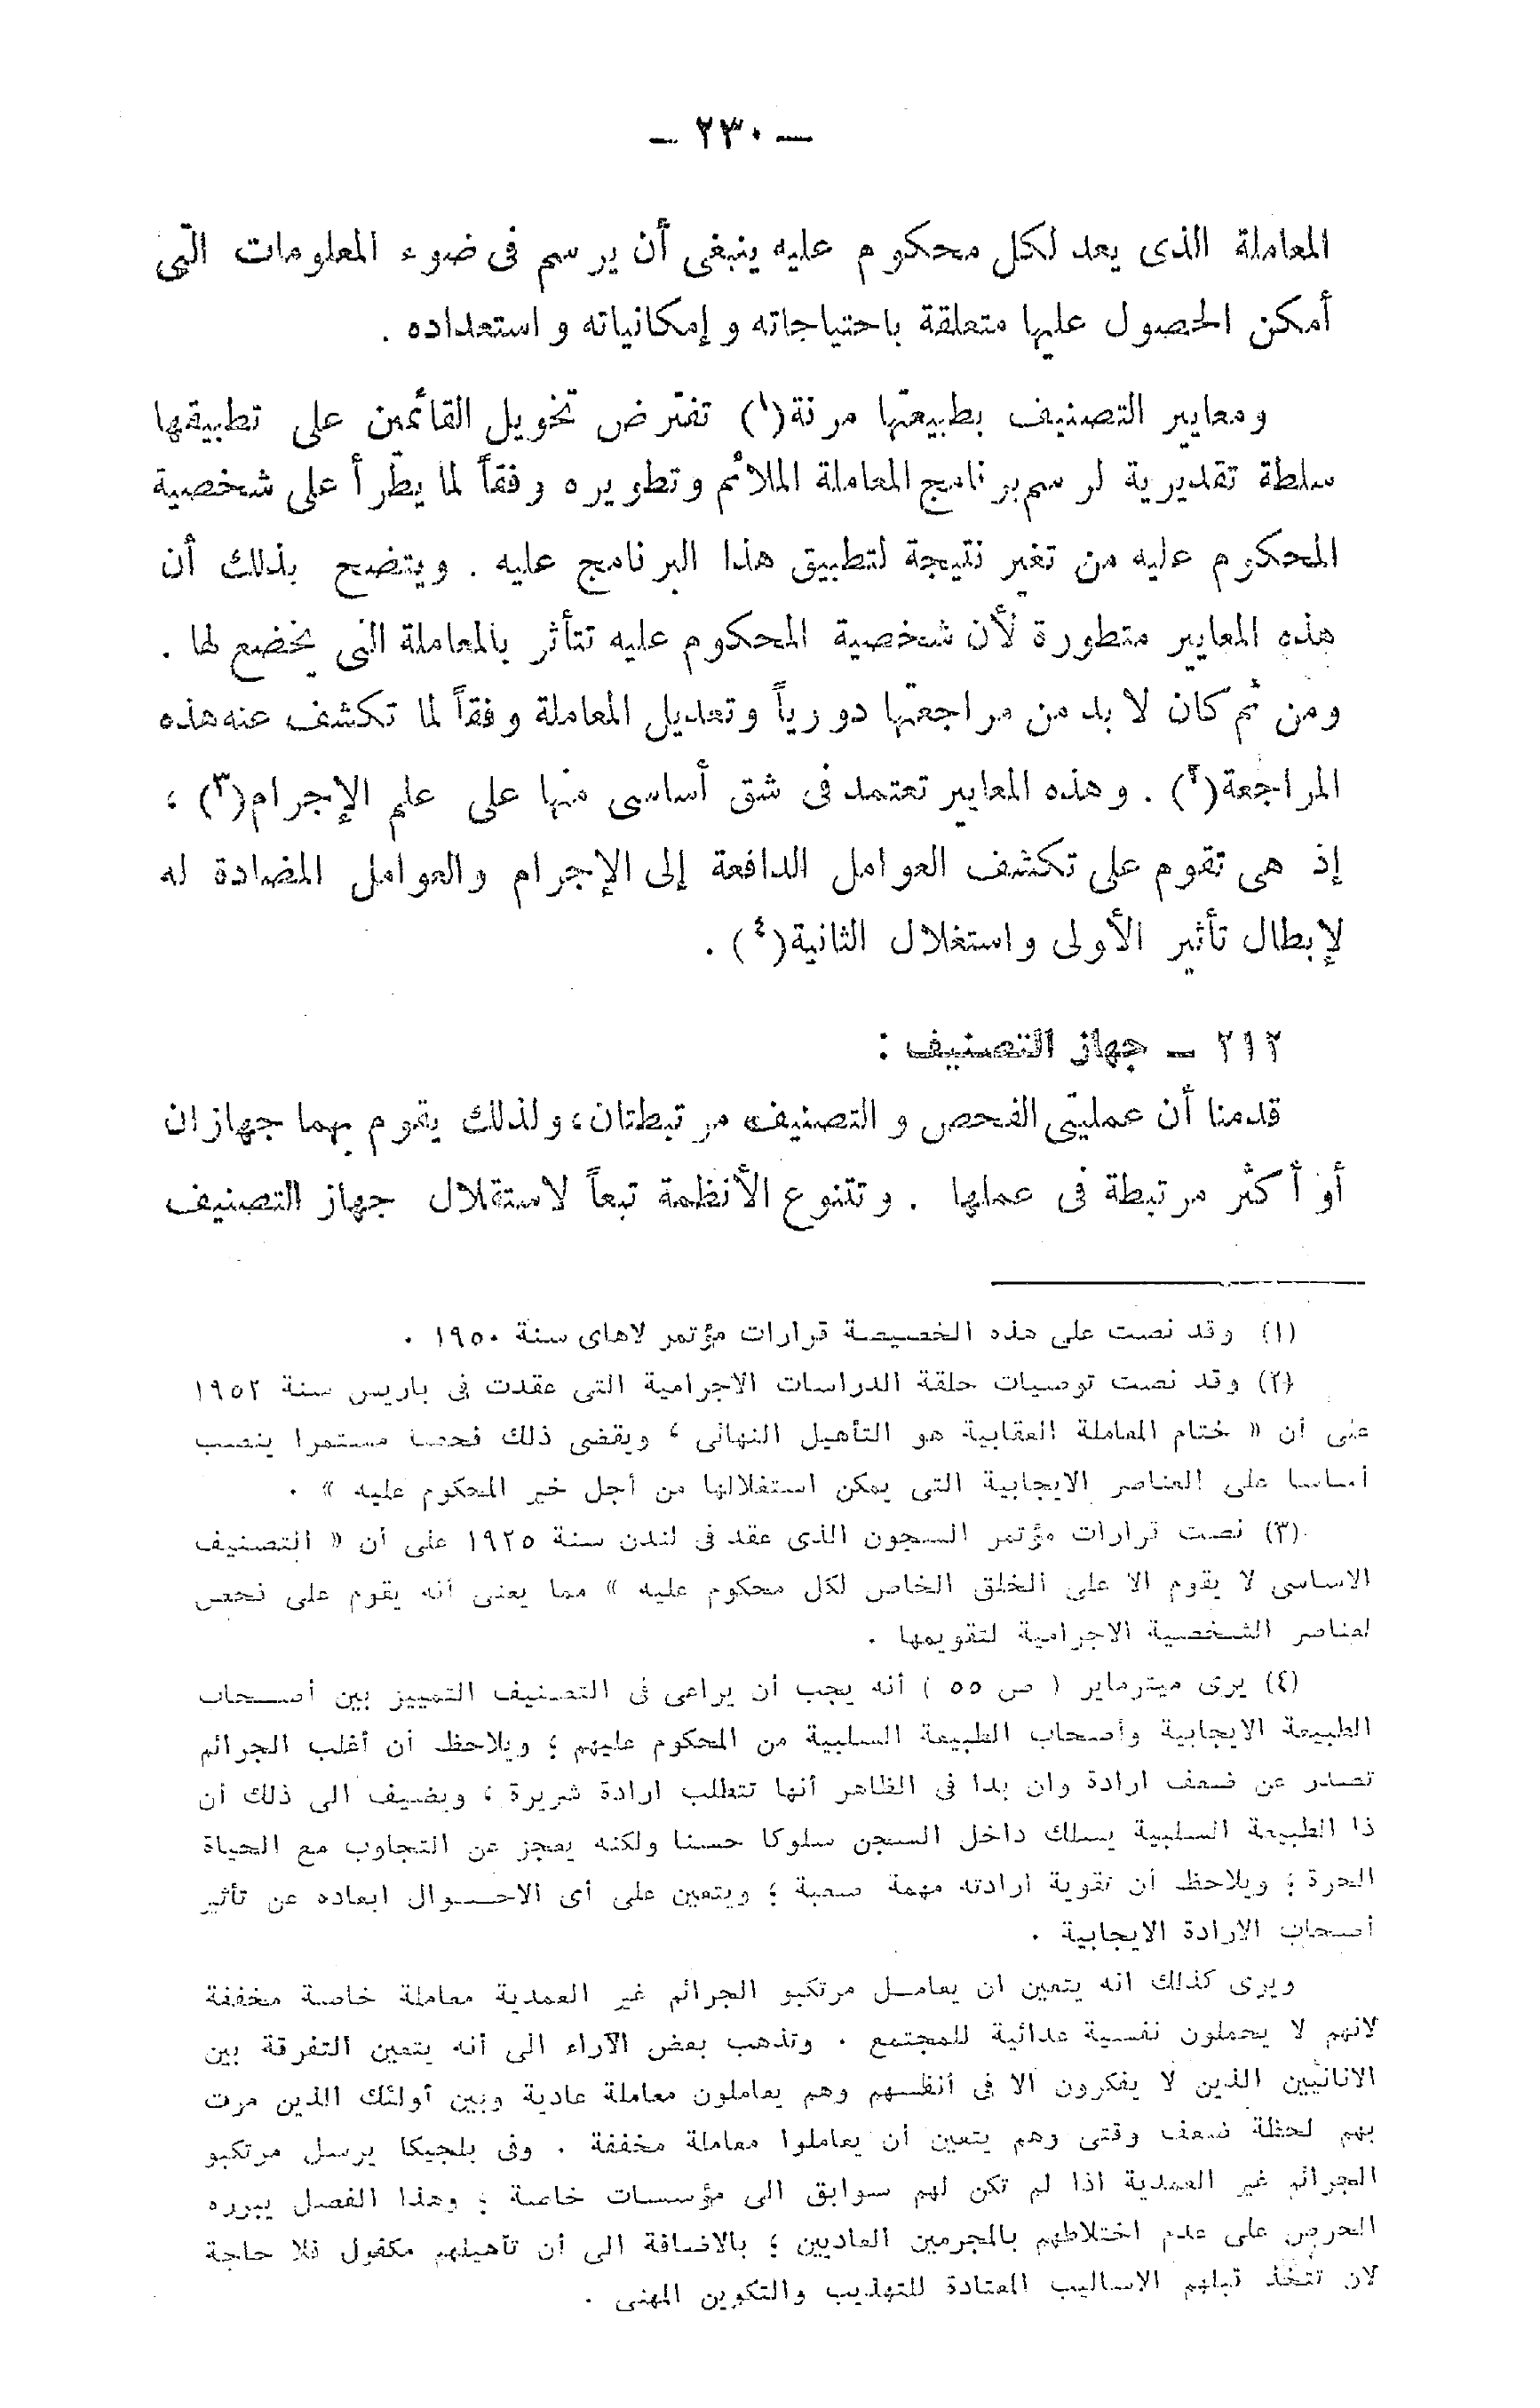 — ٢٣٠ —
المعاملة الذى يعد لكل محكوم عليه ينبغى أن يرسم فى ضوء المعلومات التى
أمكن الحصول عليها متعلقة باحتياجاته وإمكانياته واستعداده .
ومعايير التصنيف بطبيعتها مرنة(١) تفترض تخويل القائمين على تطبيقها
سلطة تقديرية لرسم برنامج المعاملة الملائم وتطويره وفقاً لما يطرأ على شخصية
المحكوم عليه من تغير نتيجة لتطبيق هذا البرنامج عليه . ويتضح بذلك أن
هذه المعايير متطورة لأن شخصية المحكوم عليه تتأثر بالمعاملة التى يخضع لها .
ومن ثم كان لا بد من مراجعتها دورياً وتعديل المعاملة وفقاً لما تكشف عنه هذه
المراجعة(٢) . وهذه المعايير تعتمد فى شق أساسى منها على علم الإجرام(٣) ،
إذ هى تقوم على تكشف العوامل الدافعة إلى الإجرام والعوامل المضادة له
لإبطال تأثير الأولى واستغلال الثانية(٤) .
٢١٢ — جهاز التصنيف :
قدمنا أن عمليتى الفحص والتصنيف مرتبطتان ، ولذلك يقوم بهما جهازان
أو أكثر مرتبطة فى عملها . وتتنوع الأنظمة تبعاً لاستقلال جهاز التصنيف
(١) وقد نصت على هذه الخصيصة قرارات مؤتمر لاهاى سنة ١٩٥٠ .
(٢) وقد نصت توصيات حلقة الدراسات الاجرامية التى عقدت فى باريس سنة ١٩٥٢
على أن « ختام المعاملة العقابية هو التأهيل النهائى ، ويقضى ذلك فحصا مستمرا ينصب
أساسا على العناصر الايجابية التى يمكن استغلالها من أجل خير المحكوم عليه » .
(٣) نصت قرارات مؤتمر السجون الذى عقد فى لندن سنة ١٩٢٥ على أن « التصنيف
الاساسى لا يقوم الا على الخلق الخاص لكل محكوم عليه » مما يعنى أنه يقوم على فحص
لعناصر الشخصية الاجرامية لتقويمها .
(٤) يرى ميترماير ( ص ٥٥ ) أنه يجب أن يراعى فى التصنيف التمييز بين أصحاب
الطبيعة الايجابية وأصحاب الطبيعة السلبية من المحكوم عليهم ؛ ويلاحظ أن أغلب الجرائم
تصدر عن ضعف ارادة وان بدا فى الظاهر أنها تتطلب ارادة شريرة ، ويضيف الى ذلك أن
ذا الطبيعة السلبية يسلك داخل السجن سلوكا حسنا ولكنه يعجز عن التجاوب مع الحياة
الحرة ؛ ويلاحظ أن تقوية ارادته مهمة صعبة ؛ ويتعين على أى الاحوال ابعاده عن تأثير
أصحاب الارادة الايجابية .
ويرى كذلك انه يتعين ان يعامل مرتكبو الجرائم غير العمدية معاملة خاصة مخففة
لانهم لا يحملون نفسية عدائية للمجتمع . وتذهب بعض الآراء الى أنه يتعين التفرقة بين
الانانيين الذين لا يفكرون الا فى أنفسهم وهم يعاملون معاملة عادية وبين أولئك الذين مرت
بهم لحظة ضعف وقتى وهم يتعين أن يعاملوا معاملة مخففة . وفى بلجيكا يرسل مرتكبو
الجرائم غير العمدية اذا لم تكن لهم سوابق الى مؤسسات خاصة ؛ وهذا الفصل يبرره
الحرص على عدم اختلاطهم بالمجرمين العاديين ؛ بالاضافة الى أن تأهيلهم مكفول فلا حاجة
لان تتخذ قبلهم الاساليب المعتادة للتهذيب والتكوين المهنى .